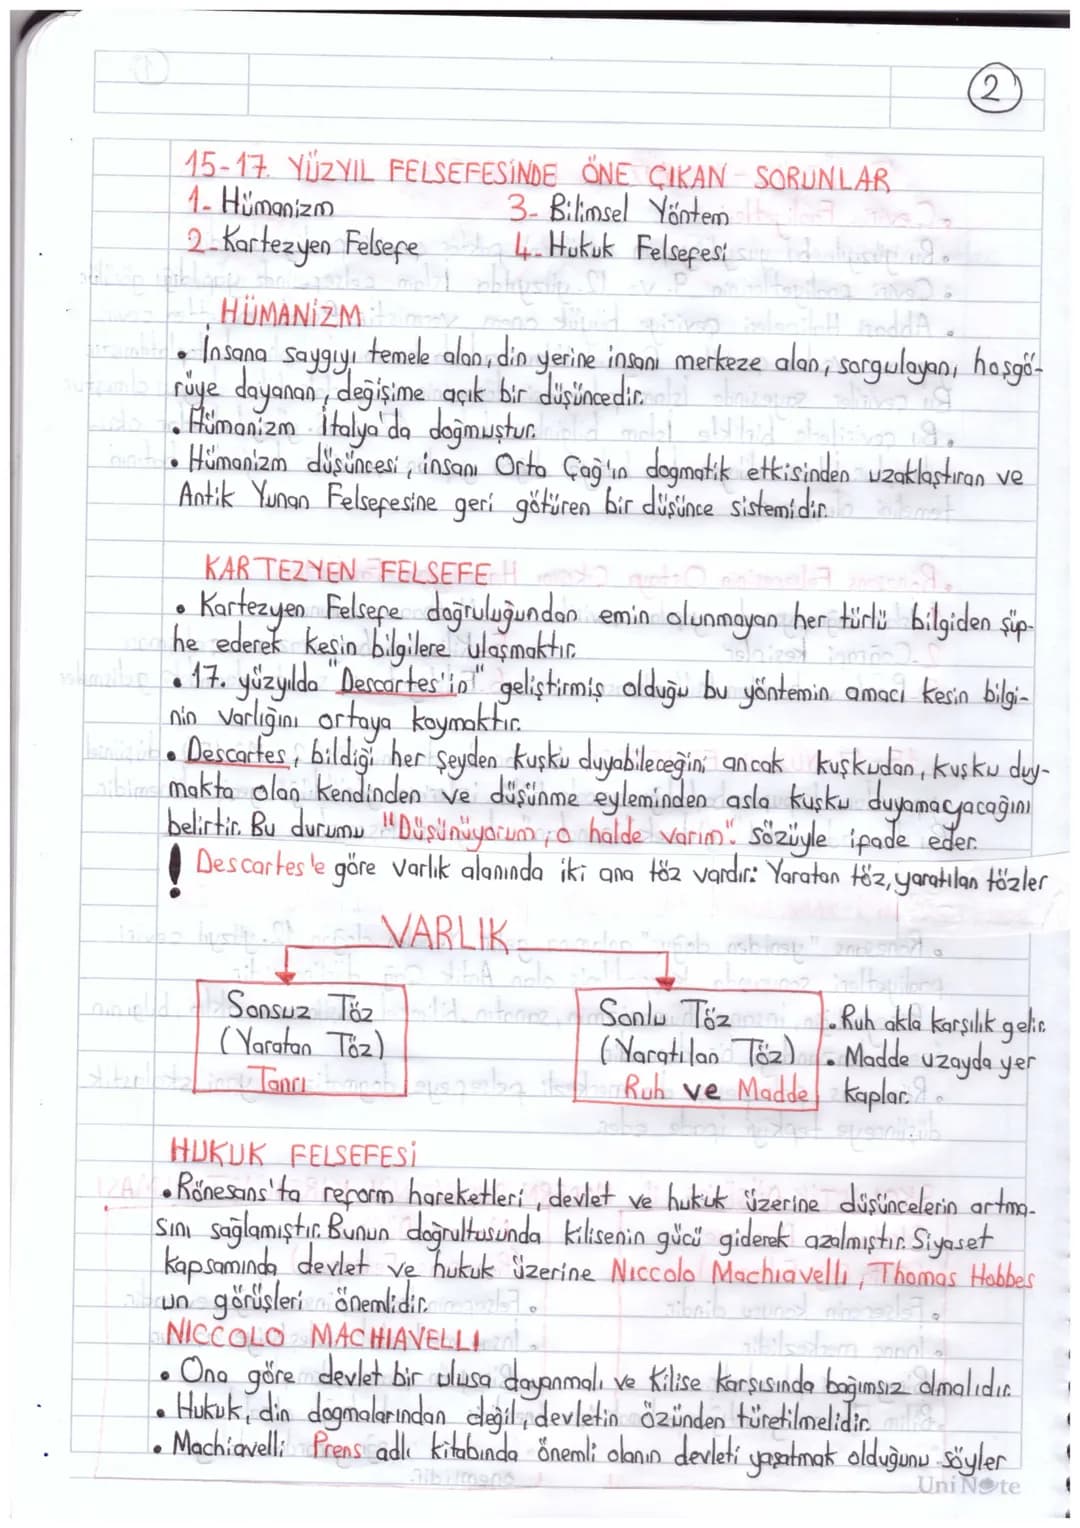 2
15-17. YÜZYIL FELSEFESİNDE ÖNE ÇIKAN SORUNLAR
1- Hümanizm
3- Bilimsel Yöntem
2- Kartezyen Felsefe
4- Hukuk Felsefesi
HÜMANİZM
• İnsana saygıyı temele alan, din yerine insanı merkeze alan, sorgulayan, hoşgö-
rüye dayanan, değişime açık bir düşüncedir.
• Hümanizm İtalya'da doğmuştur.
• Hümanizm düşüncesi, insanı Orta Çağ'ın dogmatik etkisinden uzaklaştıran ve
Antik Yunan Felsefesine geri götüren bir düşünce sistemidir.
KARTEZYEN FELSEFE
• Kartezyen Felsefe doğruluğundan emin olunmayan her türlü bilgiden şüp-
he ederek kesin bilgilere ulaşmaktır.
• 17. yüzyılda "Descartes'in" geliştirmiş olduğu bu yöntemin amacı kesin bilgi-
nin varlığını ortaya koymaktır.
• Descartes, bildiği her şeyden kuşku duyabileceğini ancak kuşkudan, kuşku duy-
makta olan kendinden ve düşünme eyleminden asla kuşku duyamacyacağını
belirtir. Bu durumu "Düşünüyorum, o halde varim". sözüyle ifade eder.
! Descartes'e göre varlık alanında iki ana töz vardır: Yaratan töz, yaratılan tözler
VARLIK
Sonsuz Töz
(Yaratan Töz)
Tanrı
Sonlu Töz
(Yaratılan Töz)
Ruh ve Madde
• Ruh akla karşılık gelir.
• Madde uzayda yer
kaplar.
HUKUK FELSEFESİ
• Rönesans'ta reform hareketleri, devlet ve hukuk üzerine düşüncelerin artma-
sını sağlamıştır. Bunun doğrultusunda kilisenin gücü giderek azalmıştır. Siyaset
kapsamında devlet ve hukuk üzerine Nıccolo Machıavellı, Thomas Hobbes
un görüşleri önemlidir.
NICCOLO MACHIAVELLI
• Ona göre devlet bir ulusa dayanmalı ve Kilise karşısında bağımsız olmalıdır.
• Hukuk, din dogmalarından değil, devletin özünden türetilmelidir.
• Machiavelli Prens adlı kitabında önemli olanın devleti yaşatmak olduğunu söyler
UniNote